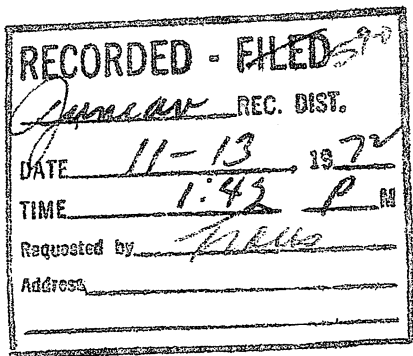 RECORDED - FILED
Juneau REC. DIST.
DATE 11-13 1972
TIME 1:43 P M
Requested by
Address